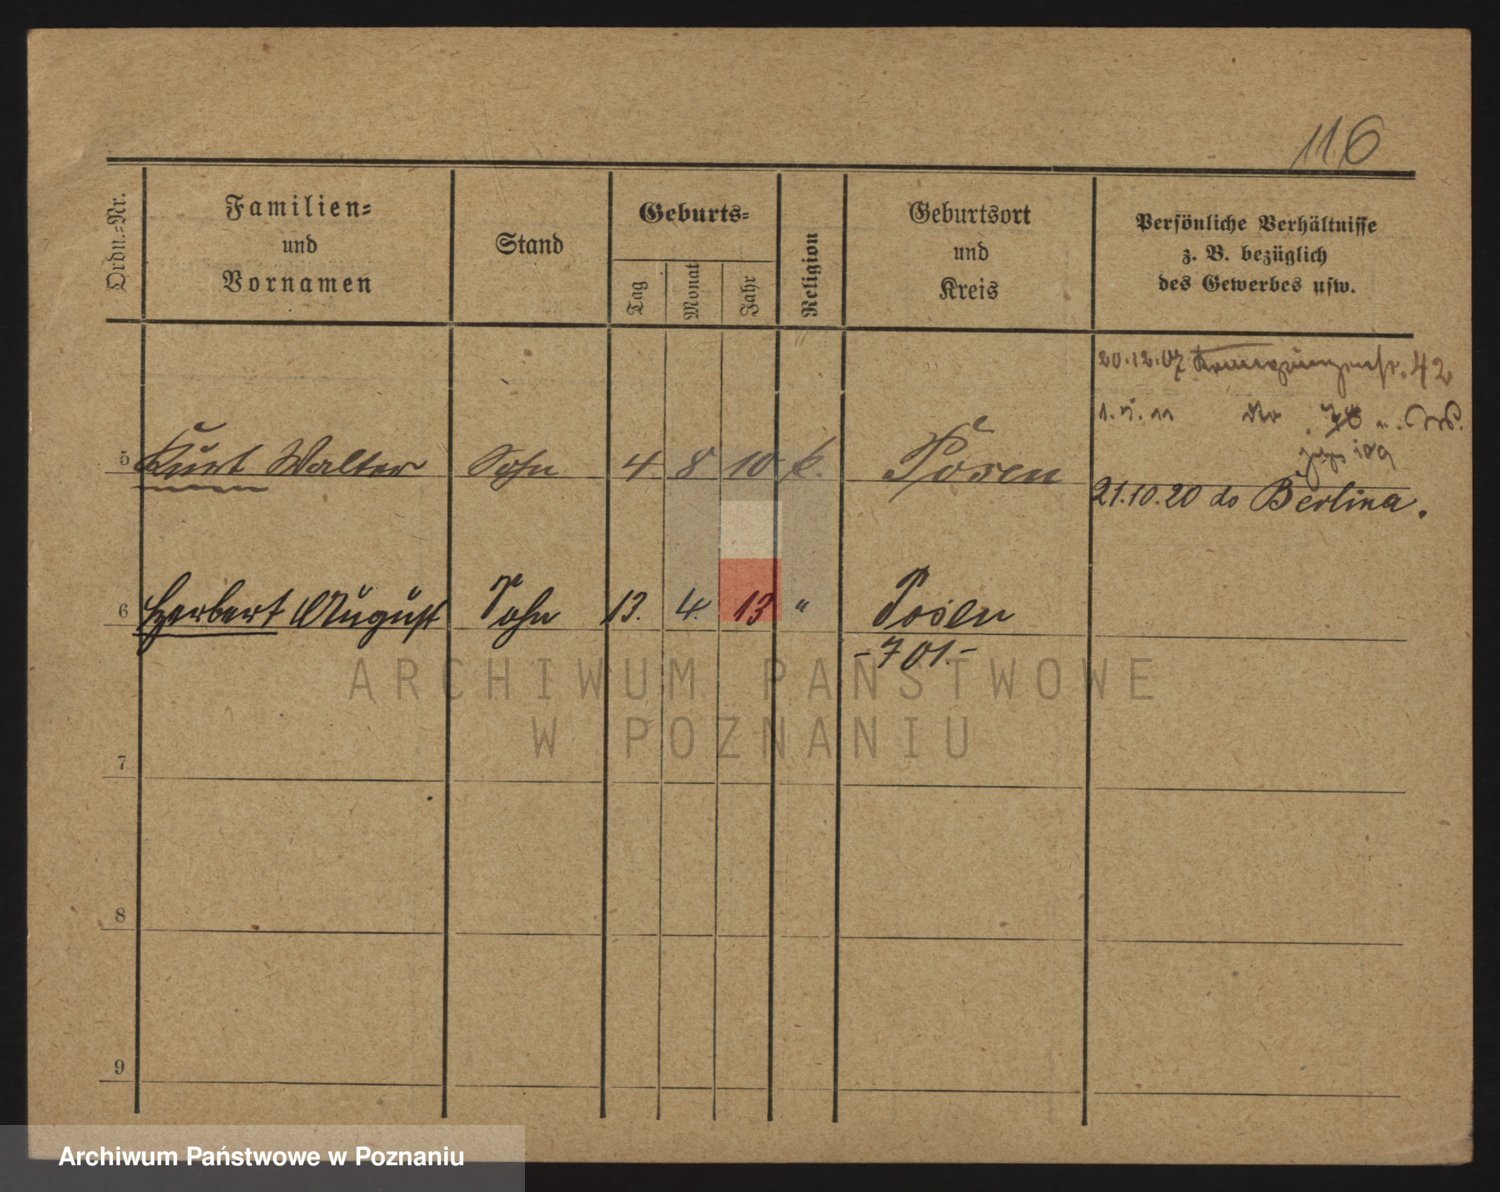 116
Ordn.-Nr.
Familien-
und
Vornamen
Stand
Geburts-
Tag
Monat
Jahr
Religion
Geburtsort
und
Kreis
Persönliche Verhältnisse
z. B. bezüglich
des Gewerbes usw.
20.12.07 42
1. 11
5 Kurt Walter Sohn 4 8 10 k. Posen
21.10.20 do Berlina.
6 Herbert August Sohn 13. 4. 13 " Posen
-701.-
ARCHIWUM PAŃSTWOWE
W POZNANIU
7
8
9
Archiwum Państwowe w Poznaniu